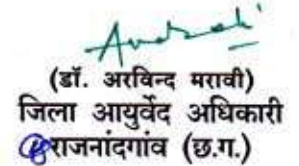 (डॉ. अरविन्द मरावी)
जिला आयुर्वेद अधिकारी
राजनांदगांव (छ.ग.)